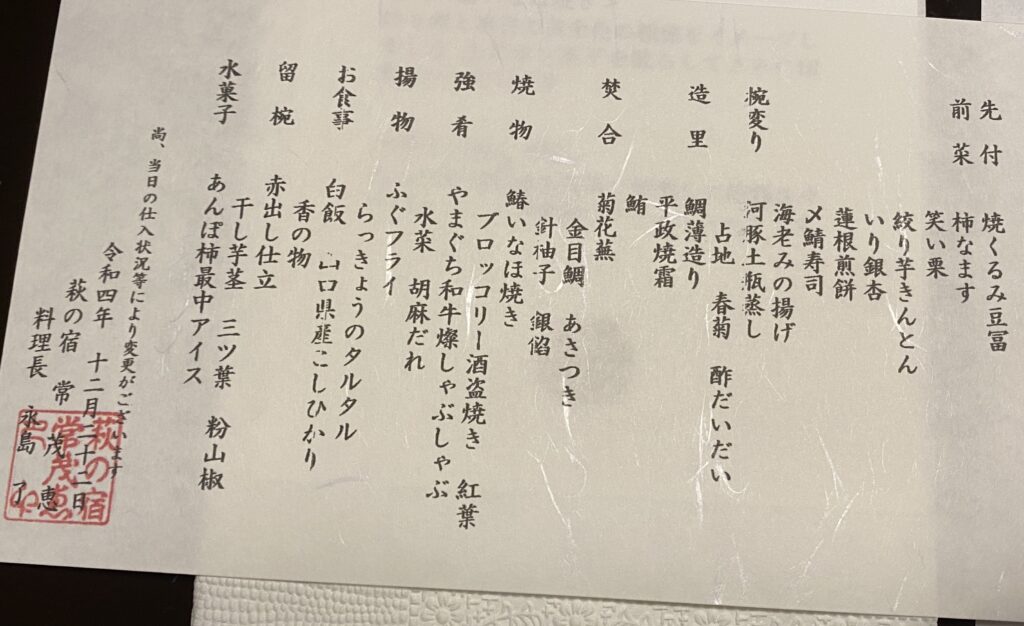 先付 焼くるみ豆冨
前菜 柿なます
笑い栗
絞り芋きんとん
いり銀杏
蓮根煎餅
〆鯖寿司
海老みの揚げ
椀変り 河豚土瓶蒸し
占地 春菊 酢だいだい
造里 鯛薄造り
平政焼霜
鮪
焚合 菊花蕪
金目鯛 あさつき
針柚子 銀餡
焼物 鰆いなほ焼き
ブロッコリー酒盗焼き 紅葉
強肴 やまぐち和牛燦しゃぶしゃぶ
水菜 胡麻だれ
揚物 ふぐフライ
らっきょうのタルタル
お食事 白飯 山口県産こしひかり
香の物
留椀 赤出し仕立
干し芋茎 三ツ葉 粉山椒
水菓子 あんぽ柿最中アイス
尚、当日の仕入状況等により変更がございます
令和四年 十二月二十二日
萩の宿 常茂恵
料理長 永島 了
萩の宿
常茂恵